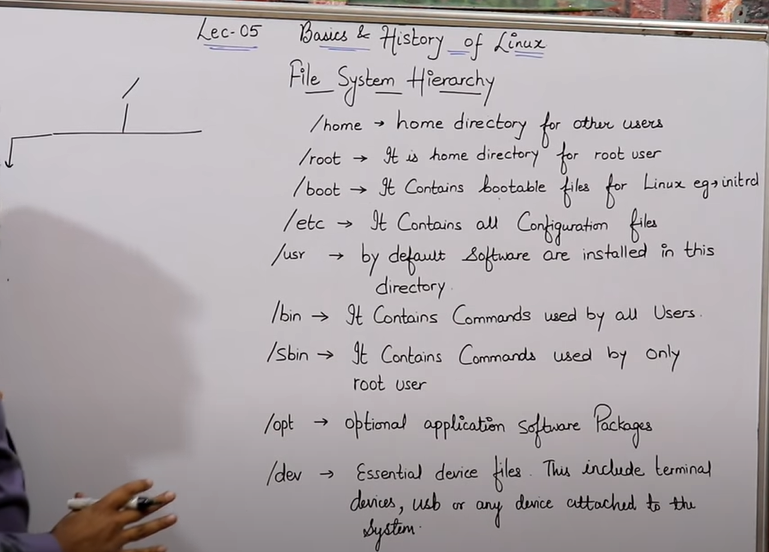 Lec-05 Basics & History of Linux
File System Hierarchy
/
/home → home directory for other users
/root → It is home directory for root user
/boot → It Contains bootable files for Linux eg→initrd
/etc → It Contains all Configuration files
/usr → by default Software are installed in this
directory.
/bin → It Contains Commands used by all Users.
/Sbin → It Contains Commands used by only
root user
/opt → optional application software Packages
/dev → Essential device files. This include terminal
devices, usb or any device attached to the
System.